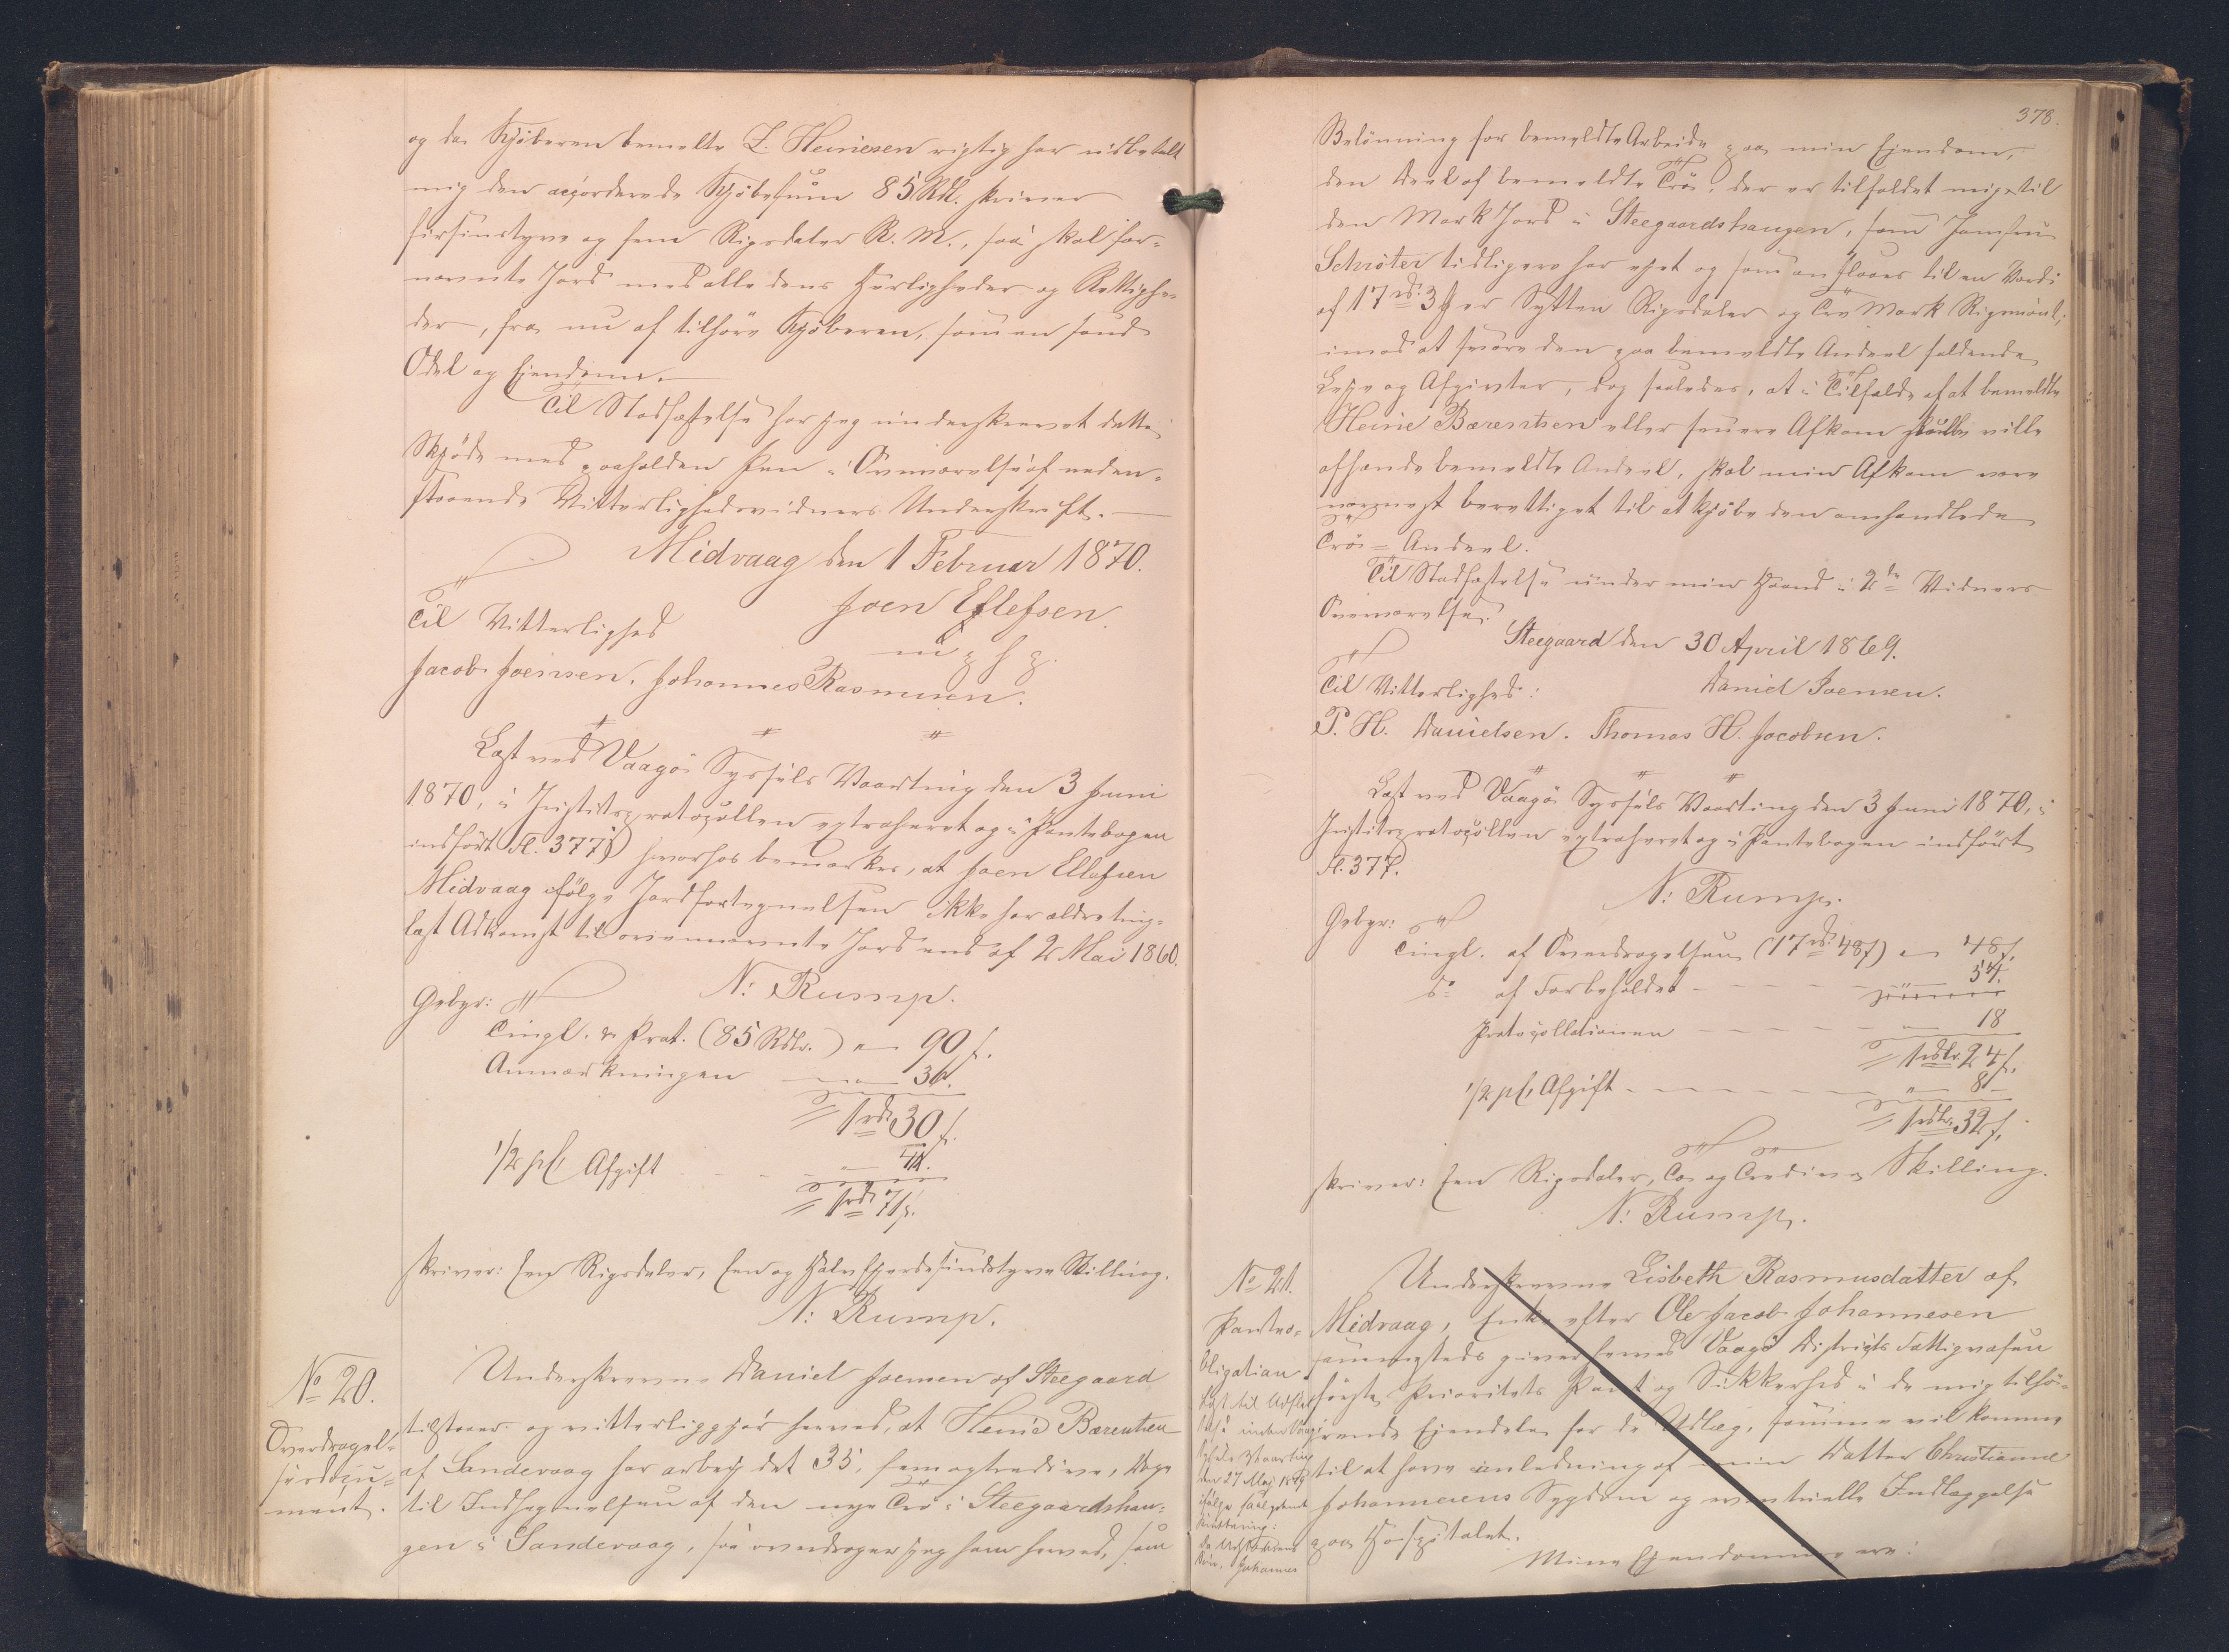 og da Kjöberen bemelte Z. Heinesen rigtig har udbetalt
mig den accorderede Kjöbesum 85 Rdl. skriver
firsindstyve og fem Rigsdaler R. M., saa skal for-
nævnte Jord med alle dens Herligheder og Rettighe-
der, fra nu af tilhöre Kjöberen, som en sand
Odel og Eiendom.
Til Stadfæstelse har jeg underskrevet dette
Skjöde med paaholden Pen i Overværelse af neden-
staaende Vitterlighedsvidners Underskrift.
Midvaag den 1 Februar 1870.
Joen Ellefsen
m. p. f. P.
Til Vitterlighed
Jacob Joensen. Johannes Rasmusen.
Læst ved Vaagö Syssels Vaarting den 3 Juni
1870, i Justitsprotocollen extraheret og i Pantebogen
indfört Fl. 377, hvorhos bemærkes, at Joen Ellefsen
Midvaag ifölge Jordfortegnelsen ikke har ældre ting-
læst Adkomst til ovennævnte Jord end af 2 Mai 1860.
N: Rump.
Gebyr:
Tingl. & Prot. (85 Rdlr.) " 90 s.
Anmærkningen " 36.
1 rd. 30 s.
1/2 pCt Afgift " 41.
1 rd. 71 s.
skriver: Een Rigsdaler, Een og Halvfjerdesindstyve Skilling.
N: Rump.
No 20.
Overdragel-
sesdocu-
ment.
Underskrevne Daniel Joensen af Steegaard
tilstaaer og vitterliggjör herved, at Heine Bærentsen
af Sandevaag har arbeidet 35, fem og tredive, Dage
til Indhegnelsen af den nye Trö i Steegaardshau-
gen i Sandevaag, saa overdrager jeg ham herved, som
378.
Belönning for bemeldte Arbeide paa min Eiendom,
den Deel af bemeldte Trö, der er tilfaldet mig til
den Mark Jord i Steegaardshaugen, som Jomfru
Schröter tidligere har eiet og som anslaaes til en Værdi
af 17 rd. 3 # er Sytten Rigsdaler og Tre Mark Rigsmönt,
imod at svare den paa bemeldte Andeel faldende
Leie og Afgivter, dog saaledes, at i Tilfælde af at bemeldte
Heine Bærentsen eller senere Afkom skulle ville
afhænde bemeldte Andeel, skal min Afkom være
nærmest berettiget til at kjöbe den omhandlede
Trö-Andeel.
Til Stadfæstelse under min Haand i 2de Vidners
Overværelse.
Steegaard den 30 April 1869.
Daniel Joensen.
Til Vitterlighed:
P. H. Danielsen. Thomas H. Jacobsen.
Læst ved Vaagö Syssels Vaarting den 3 Juni 1870, i
Justitsprotocollen extraheret og i Pantebogen indfört
Fl. 377.
N: Rump.
Gebyr:
Tingl. af Overdragelsen (17 rd. 48 s) " 48 s.
do af Forbeholdet " 54.
Protocollationen " 18
1 rdlr. 24 s.
1/2 pCt. Afgift " 8
1 rdlr. 32 s.
skriver: Een Rigsdaler, To og Tredive Skilling.
N: Rump.
No 21.
Pante-
obligation
Læst til Udslet-
telse under Vaagö
Syssels Vaarting
den 27 Mai
ifölge saalydende
Qvittering:
Johannes
Underskrevne Lisbeth Rasmusdatter af
Midvaag, Enke efter Ole Jacob Johannesen
sammesteds giver herved Vaagö Districts Fattigvæsen
förste Prioritets Pant og Sikkerhed i de mig tilhö-
rende Eiendele for de Udlæg, samme vil komme
til at have i anledning af min Datter Christianne
Johannesens Sygdom og eventuelle Indlæggelse
paa Hospitalet.
Mine Eiendomme ere: